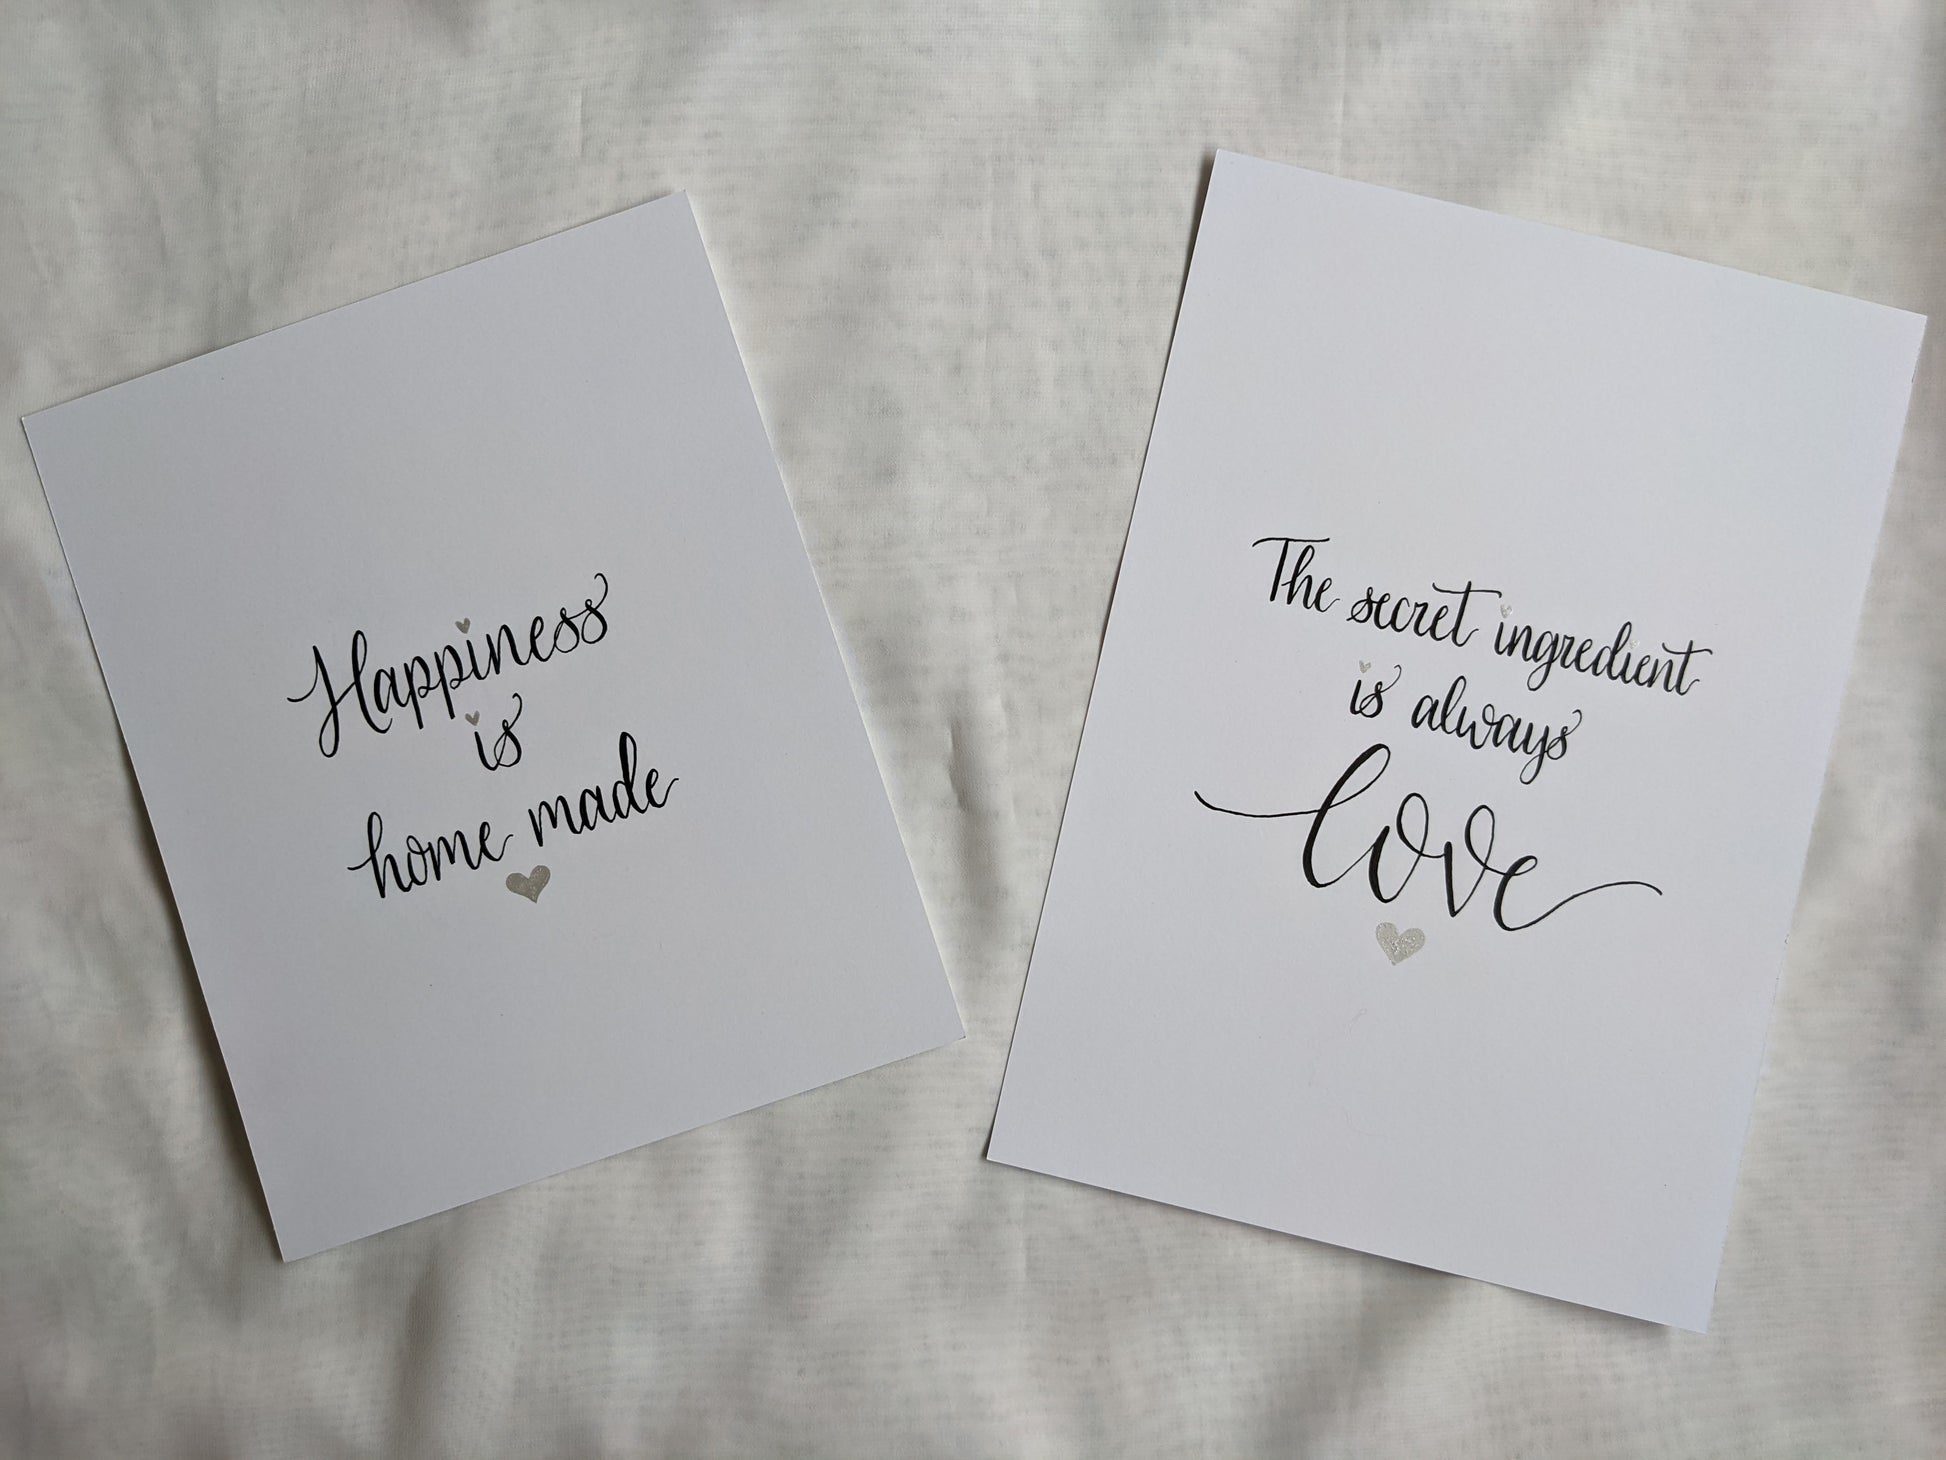 Happiness
is
home made
The secret ingredient
is always
love